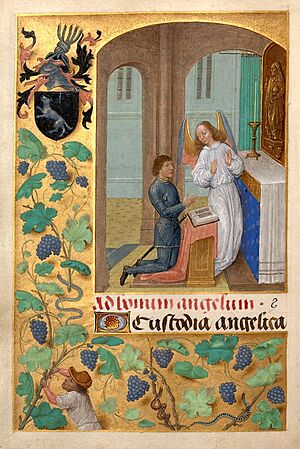 Ad bonum angelum ·
O Custodia angelica